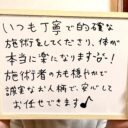 いつも丁寧で的確な
施術をしてくださり、体が
本当に楽になりますぅ〜!
施術者の方も穏やかで
誠実なお人柄で、安心して
お任せできます♪